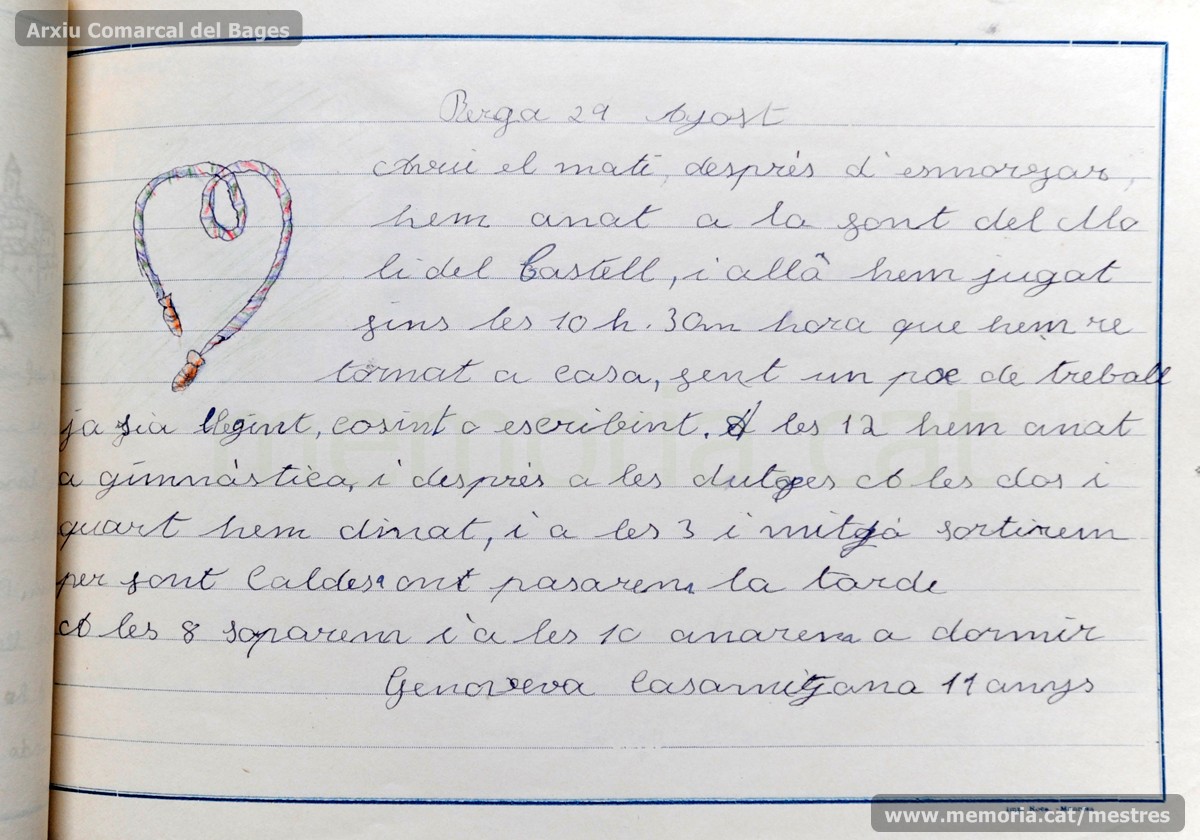 Arxiu Comarcal del Bages
Berga 29 Agost
Avui el matí, després d'esmorzar,
hem anat a la font del Mo
li del Castell, i allâ hem jugat
fins les 10 h. 30m hora que hem re
tornat a casa, fent un poc de treball
ja sia llegint, cosint o escribint. A les 12 hem anat
a gimnàstica, i després a les dutxes A les dos i
quart hem dinat, i a les 3 i mitja sortirem
per font Caldes ont pasarem la tarde
A les 8 soparem i a les 10 anarem a dormir
Genoveva Casamitjana 11 anys
memoria.cat
www.memoria.cat/mestres